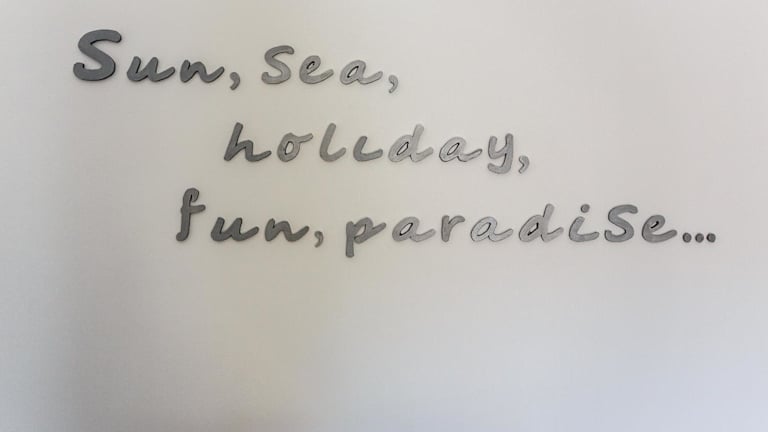 Sun, Sea,
holıday,
fun, paradise...